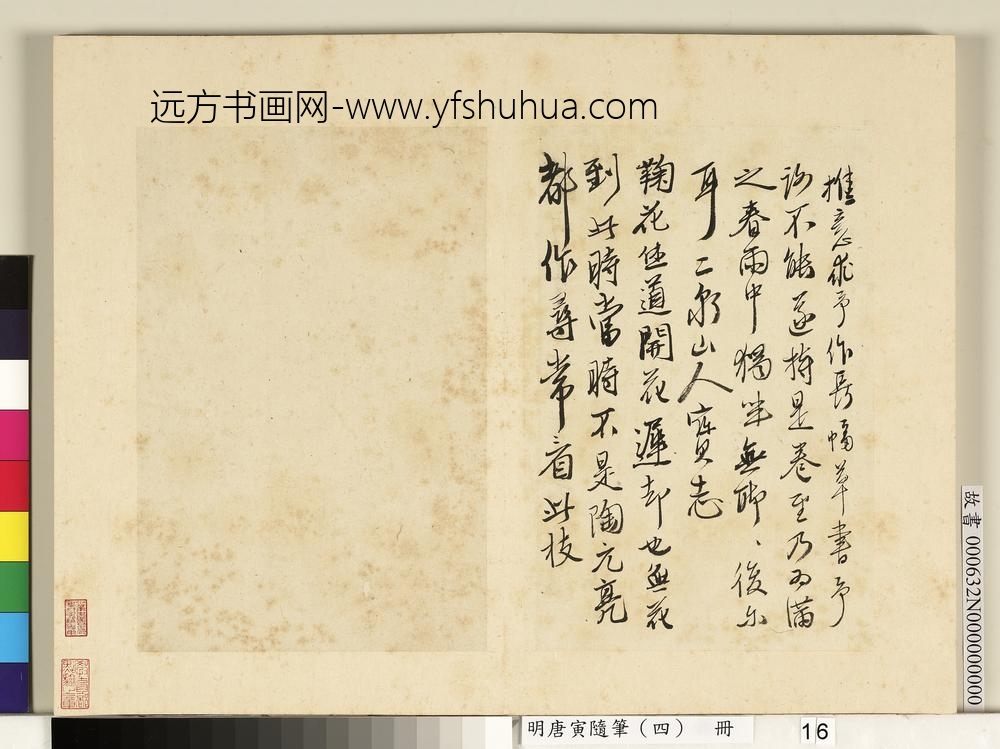 远方书画网-www.yfshuhua.com
推意求予作長幅草書予
謝不能遂持是卷至乃為滿
之春雨中獨坐無聊、後尔
耳二泉山人寶志
鞠花
道開花遲却也無花
到此時當時不是陶元亮
都作尋常看此枝
故書 000632N000000000
明唐寅隨筆(四) 冊
16